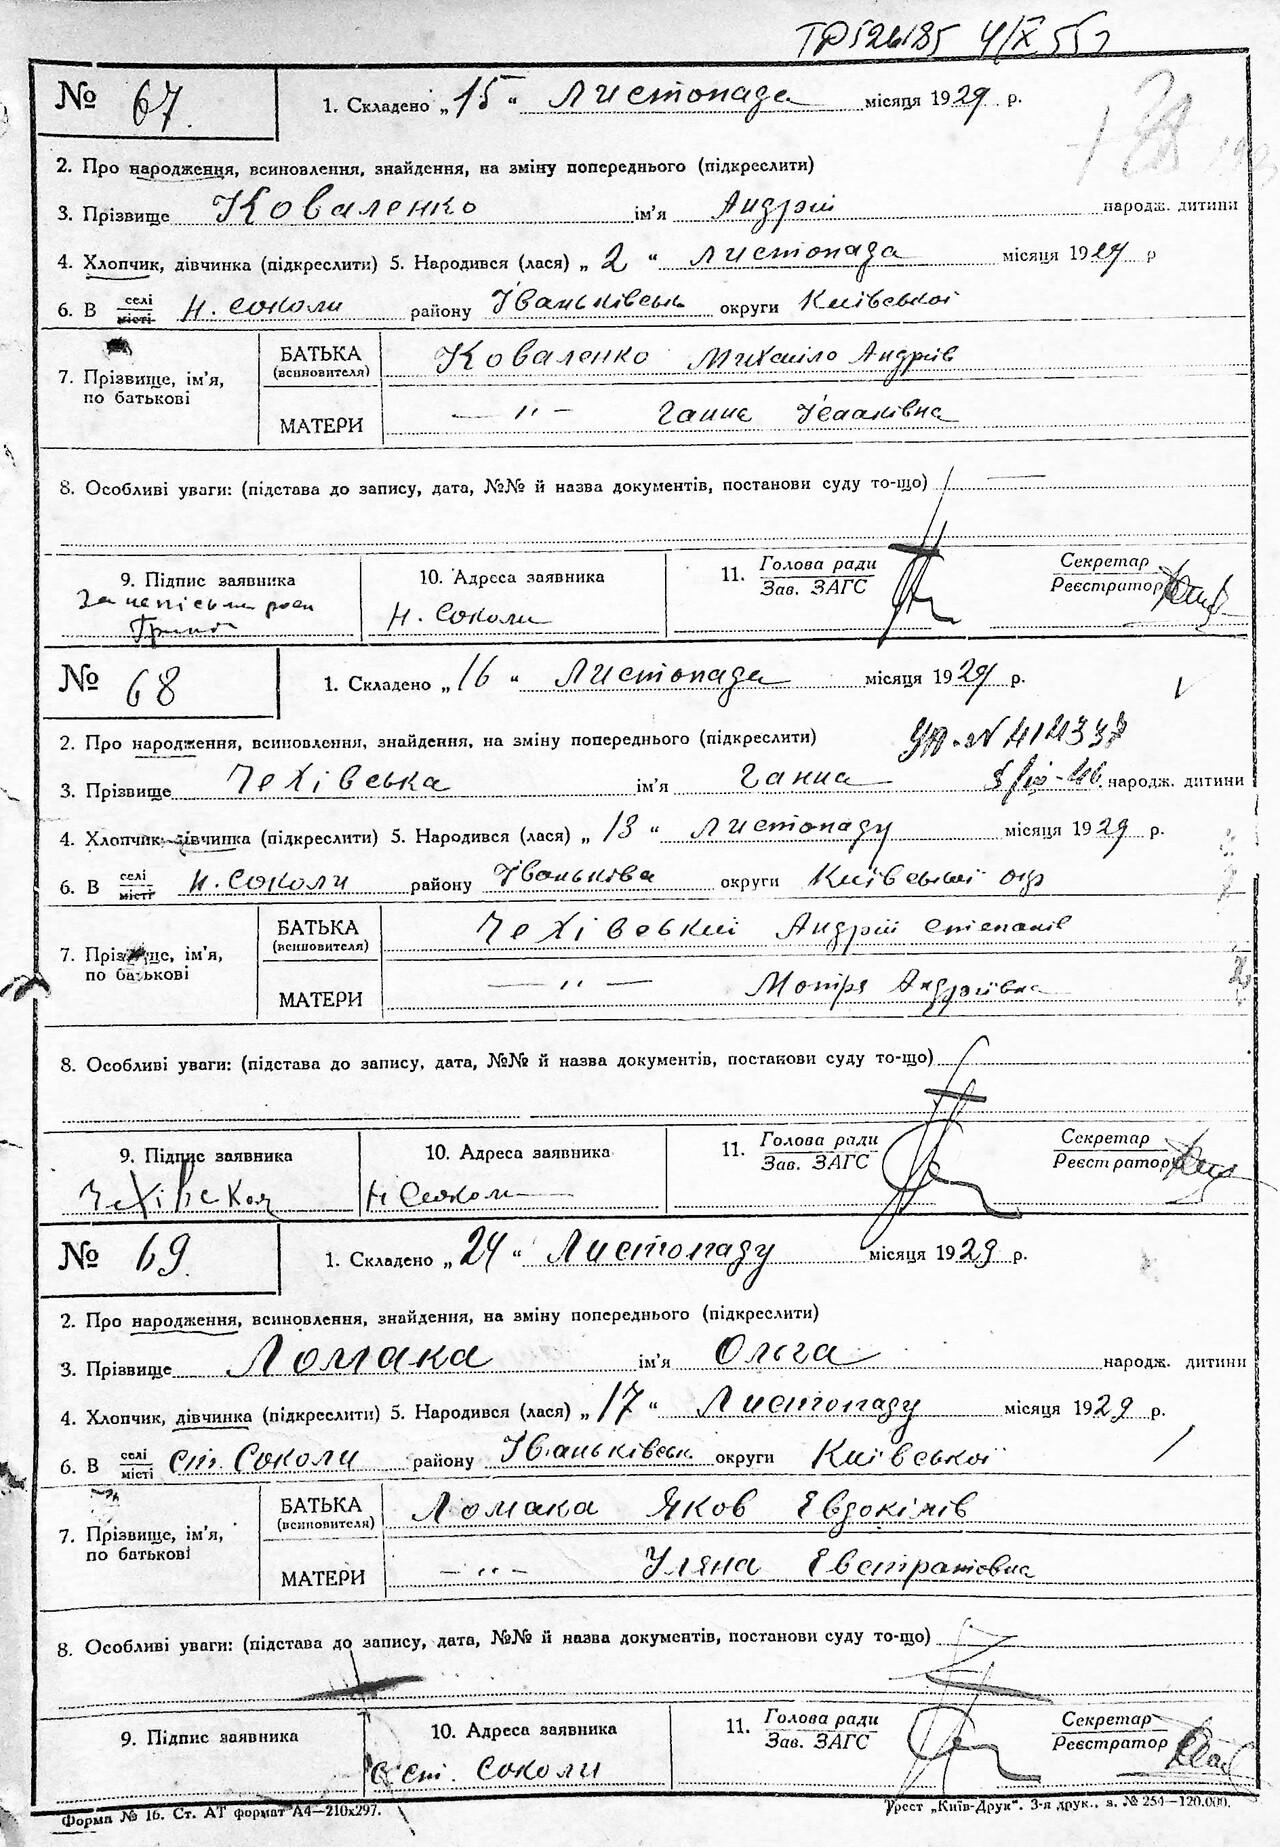 № 67. 1. Складено „15“ Листопада місяця 1929 р.
2. Про народження, всиновлення, знайдення, на зміну попереднього (підкреслити)
3. Прізвище Коваленко ім’я Андрій народж. дитини
4. Хлопчик, дівчинка (підкреслити) 5. Народився (лася) „2“ Листопада місяця 1929 р
6. В селі місті Н. Соколи району Іваньківськ округи Київської
7. Прізвище, ім’я, по батькові
БАТЬКА (всиновителя) Коваленко Михаіло Андріїв
МАТЕРИ — „ — Ганна Ісааківна
8. Особливі уваги: (підстава до запису, дата, №№ й назва документів, постанови суду то-що) —
9. Підпис заявника 10. Адреса заявника 11. Голова ради Зав. ЗАГС Секретар Реєстратор
За неписьмен
Н. Соколи
№ 68 1. Складено „16“ Листопада місяця 1929 р.
2. Про народження, всиновлення, знайдення, на зміну попереднього (підкреслити) № 414337
3. Прізвище Чехівська ім’я Ганна народж. дитини
4. Хлопчик, дівчинка (підкреслити) 5. Народився (лася) „13“ Листопаду місяця 1929 р.
6. В селі місті Н. Соколи району Іванькова округи Київської окр
7. Прізвище, ім’я, по батькові
БАТЬКА (всиновителя) Чехівський Андрій Степанів
МАТЕРИ — „ — Мотря Андріївна
8. Особливі уваги: (підстава до запису, дата, №№ й назва документів, постанови суду то-що)
9. Підпис заявника 10. Адреса заявника 11. Голова ради Зав. ЗАГС Секретар Реєстратор
Чехівская Н Соколи
№ 69. 1. Складено „24“ Листопаду місяця 1929 р.
2. Про народження, всиновлення, знайдення, на зміну попереднього (підкреслити)
3. Прізвище Ломака ім’я Ольга народж. дитини
4. Хлопчик, дівчинка (підкреслити) 5. Народився (лася) „17“ Листопаду місяця 1929 р.
6. В селі місті Ст. Соколи району Іваньківськ округи Київської
7. Прізвище, ім’я, по батькові
БАТЬКА (всиновителя) Ломака Яков Евдокімів
МАТЕРИ — „ — Уляна Евстратовна
8. Особливі уваги: (підстава до запису, дата, №№ й назва документів, постанови суду то-що)
9. Підпис заявника 10. Адреса заявника 11. Голова ради Зав. ЗАГС Секретар Реєстратор
с Ст. Соколи
Форма № 16. Ст. АТ формат А4—210х297. Трест „Київ-Друк“. 3-я друк., з. № 254—120.000.